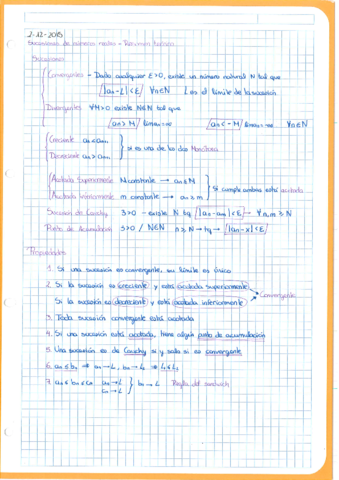 2-12-2015
Sucesiones de números reales - Resumen teórico
Sucesiones
Convergentes - Dado cualquier E>0, existe un número natural N tal que
|an-L|<E ∀n≥N L es el límite de la sucesión
Divergentes ∀M>0 existe N∈N tal que
an>M / lim an=∞ an<-M / lim an=-∞ ∀n≥N
Creciente an≤an+1
Decreciente an≥an+1
si es una de las dos Monótona
Acotada superiormente M constante → an≤M
Acotada inferiormente m constante → an≥m
Si cumple ambas está acotada
Sucesión de Cauchy E>0 - existe N tq |an-am|<E → ∀n,m≥N
Punto de Acumulación E>0 / N∈N n≥N → tq → |an-x|<E
Propiedades
1. Si una sucesión es convergente, su límite es único
2. Si la sucesión es creciente y está acotada superiormente
Si la sucesión es decreciente y está acotada inferiormente
Convergente
3. Toda sucesión convergente está acotada
4. Si una sucesión está acotada, tiene algún punto de acumulación
5. Una sucesión es de Cauchy si y solo si es convergente
6. an≤bn ⇒ an→L1, bn→L2 ⇒ L1≤L2
7. an≤bn≤cn an→L cn→L } bn→L Regla del sandwich